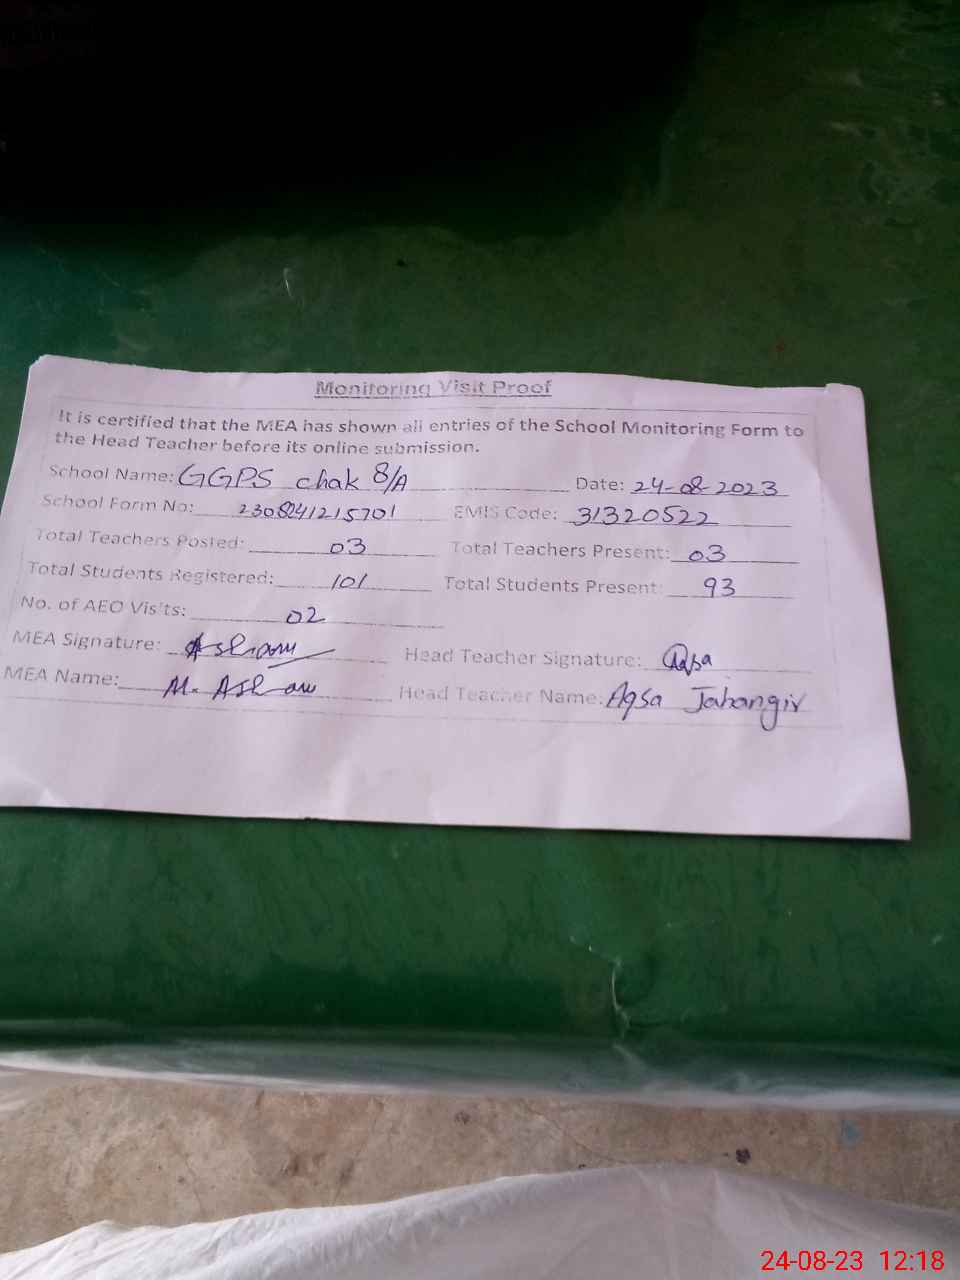 Monitoring Visit Proof
It is certified that the MEA has shown all entries of the School Monitoring Form to
the Head Teacher before its online submission.
School Name: GGPS chak 8/A Date: 24-08-2023
School Form No: 2308241215701 EMIS Code: 31320522
Total Teachers Posted: 03 Total Teachers Present: 03
Total Students Registered: 101 Total Students Present: 93
No. of AEO Visits: 02
MEA Signature: Head Teacher Signature: Aqsa
MEA Name: M. Head Teacher Name: Aqsa Jahangir
24-08-23 12:18